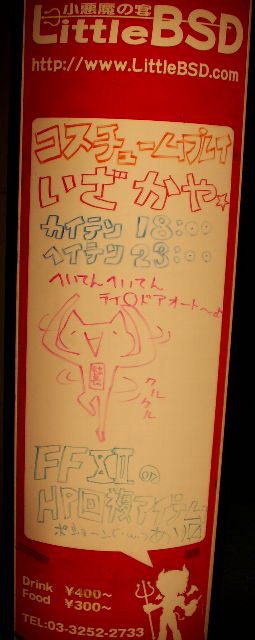 小悪魔の宴
LittleBSD
http://www.LittleBSD.com
コスチュームプレイ
いざかや☆
カイテン 18:00
ヘイテン 23:00
へいてんへいてん
クルクル
FFXII の
HP回復アイテム
Drink ¥400～
Food ¥300～
TEL:03-3252-2733